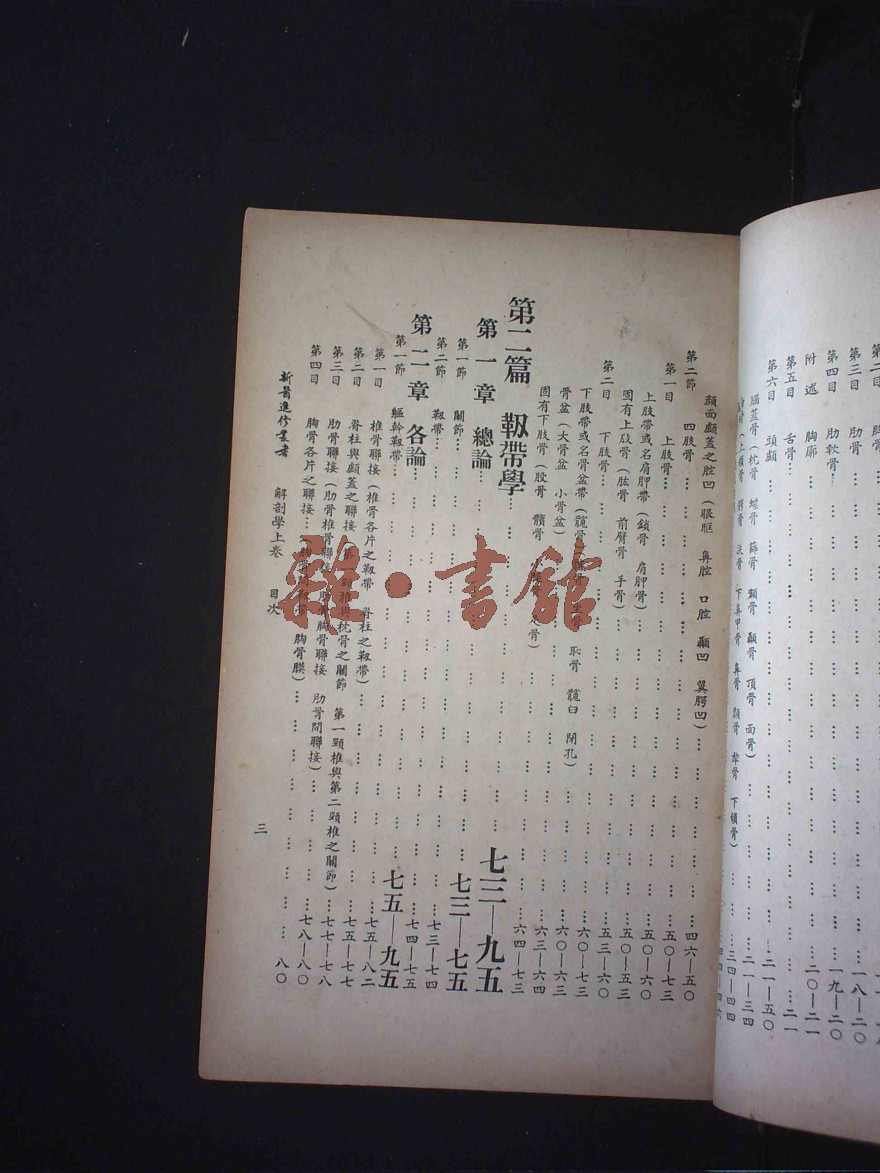 第三目 肋骨……一八—二〇
第四目 肋軟骨……一九—二〇
附述 胸廓……二〇—二一
第五目 舌骨……二一
第六目 頭顱……二一—五〇
腦蓋骨(枕骨 蝶骨 篩骨 顳骨 顱骨 頂骨 面骨)……二一—三四
下鼻甲骨 鼻骨 犂骨 下頜骨)……三四—四四
顏面顱蓋之腔凹(眼眶 鼻腔 口腔 顳凹 翼腭凹)……四六—五〇
第二節 四肢骨……五〇—七三
第一目 上肢骨……五〇—六〇
上肢帶或名肩胛帶(鎖骨 肩胛骨)……五〇—五三
固有上肢骨(肱骨 前臂骨 手骨)……五三—六〇
第二目 下肢骨……六〇—七三
下肢帶或名骨盆帶(髖骨 恥骨 髖臼 閉孔)……六〇—六三
骨盆(大骨盆 小骨盆)……六三—六四
固有下肢骨(股骨 髕骨 骨)……六四—七三
第二篇 靱帶學……七三—九五
第一章 總論……七三—七五
第一節 關節……七三—七四
第二節 靱帶……七四—七五
第二章 各論……七五—九五
第一節 軀幹靱帶……七五—八二
第一目 椎骨聯接(椎骨各片之靱帶 脊柱之靱帶)……七五—七七
第二目 脊柱與顱蓋之聯接 第一頸椎與枕骨之關節 第一頸椎與第二頸椎之關節)……七七—七八
第三目 肋骨聯接(肋骨椎骨聯接 肋骨胸骨聯接 肋骨間聯接)……七八—八〇
第四目 胸骨各片之聯接 靱帶 胸骨膜)……八〇
新醫進修叢書 解剖學上卷 目次 三
雜·書館